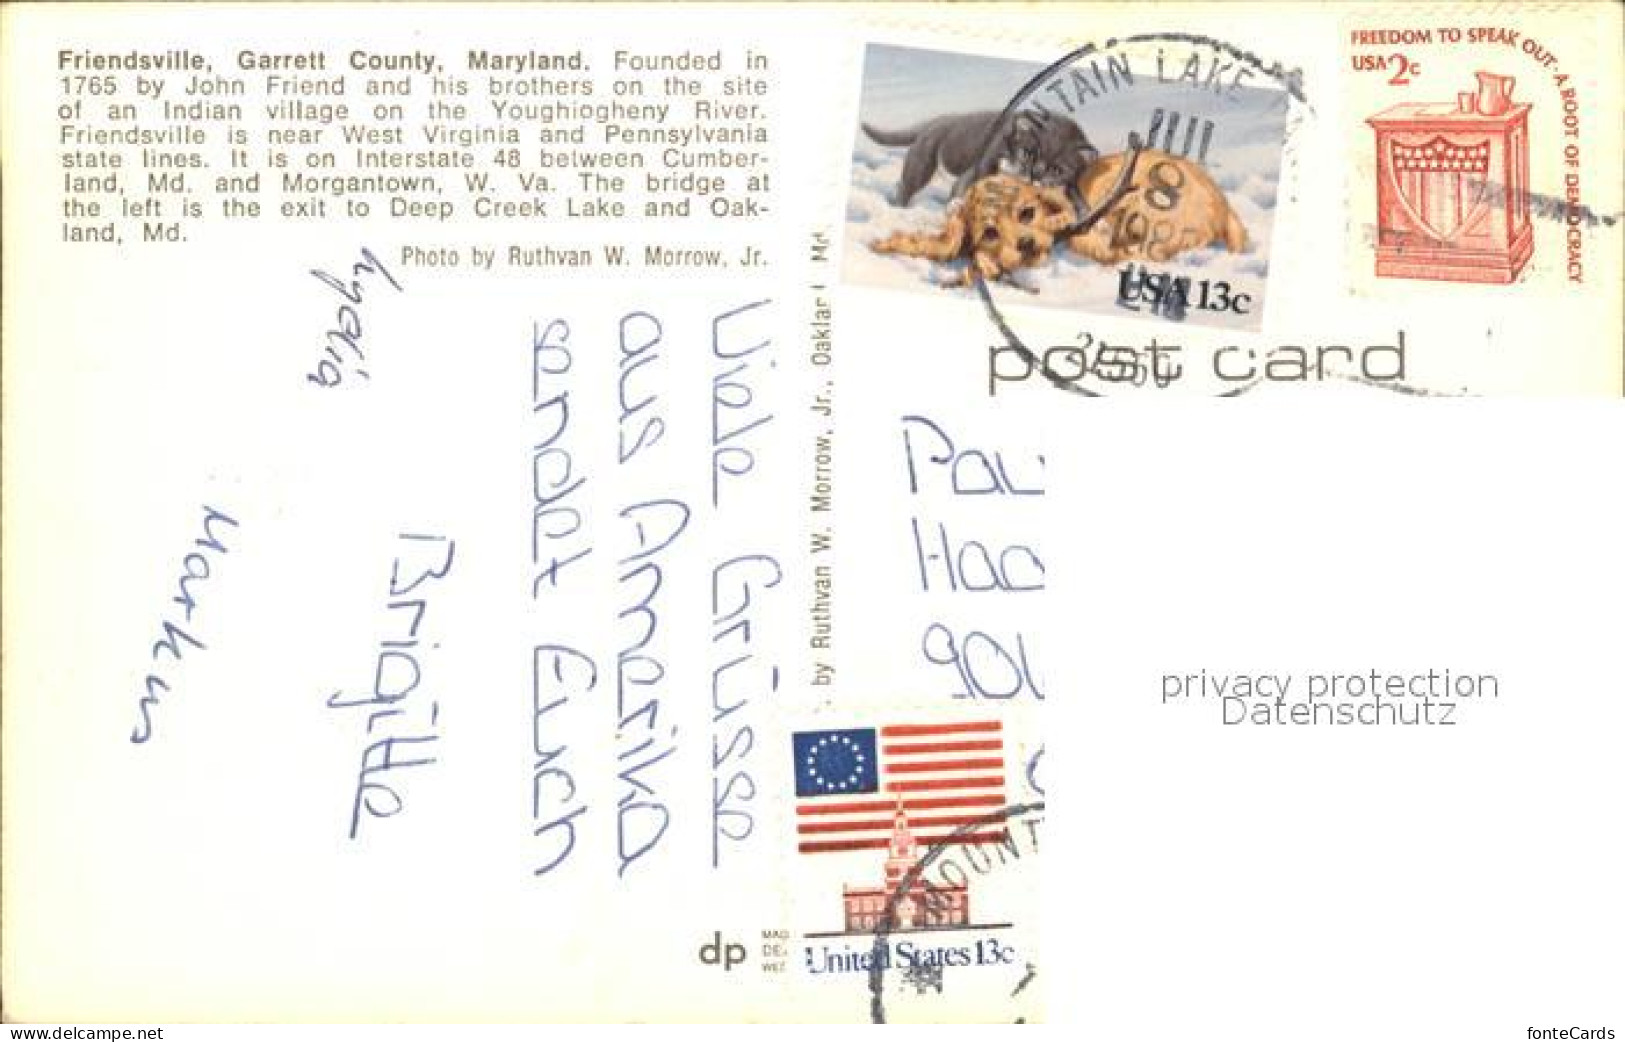 Friendsville, Garrett County, Maryland. Founded in
1765 by John Friend and his brothers on the site
of an Indian village on the Youghiogheny River.
Friendsville is near West Virginia and Pennsylvania
state lines. It is on Interstate 48 between Cumber-
land, Md. and Morgantown, W. Va. The bridge at
the left is the exit to Deep Creek Lake and Oak-
land, Md.
Photo by Ruthvan W. Morrow, Jr.
Viele Grüsse
aus Amerika
sendet Euch
Brigitte
Lydia
Markus
by Ruthvan W. Morrow, Jr., Oakland Md.
MOUNTAIN LAKE
JUL
8
USA 13c
FREEDOM TO SPEAK OUT-A ROOT OF DEMOCRACY
USA 2c
post card
Pau
Haa
privacy protection
Datenschutz
MOUNT
United States 13c
dp
www.delcampe.net
fonteCards